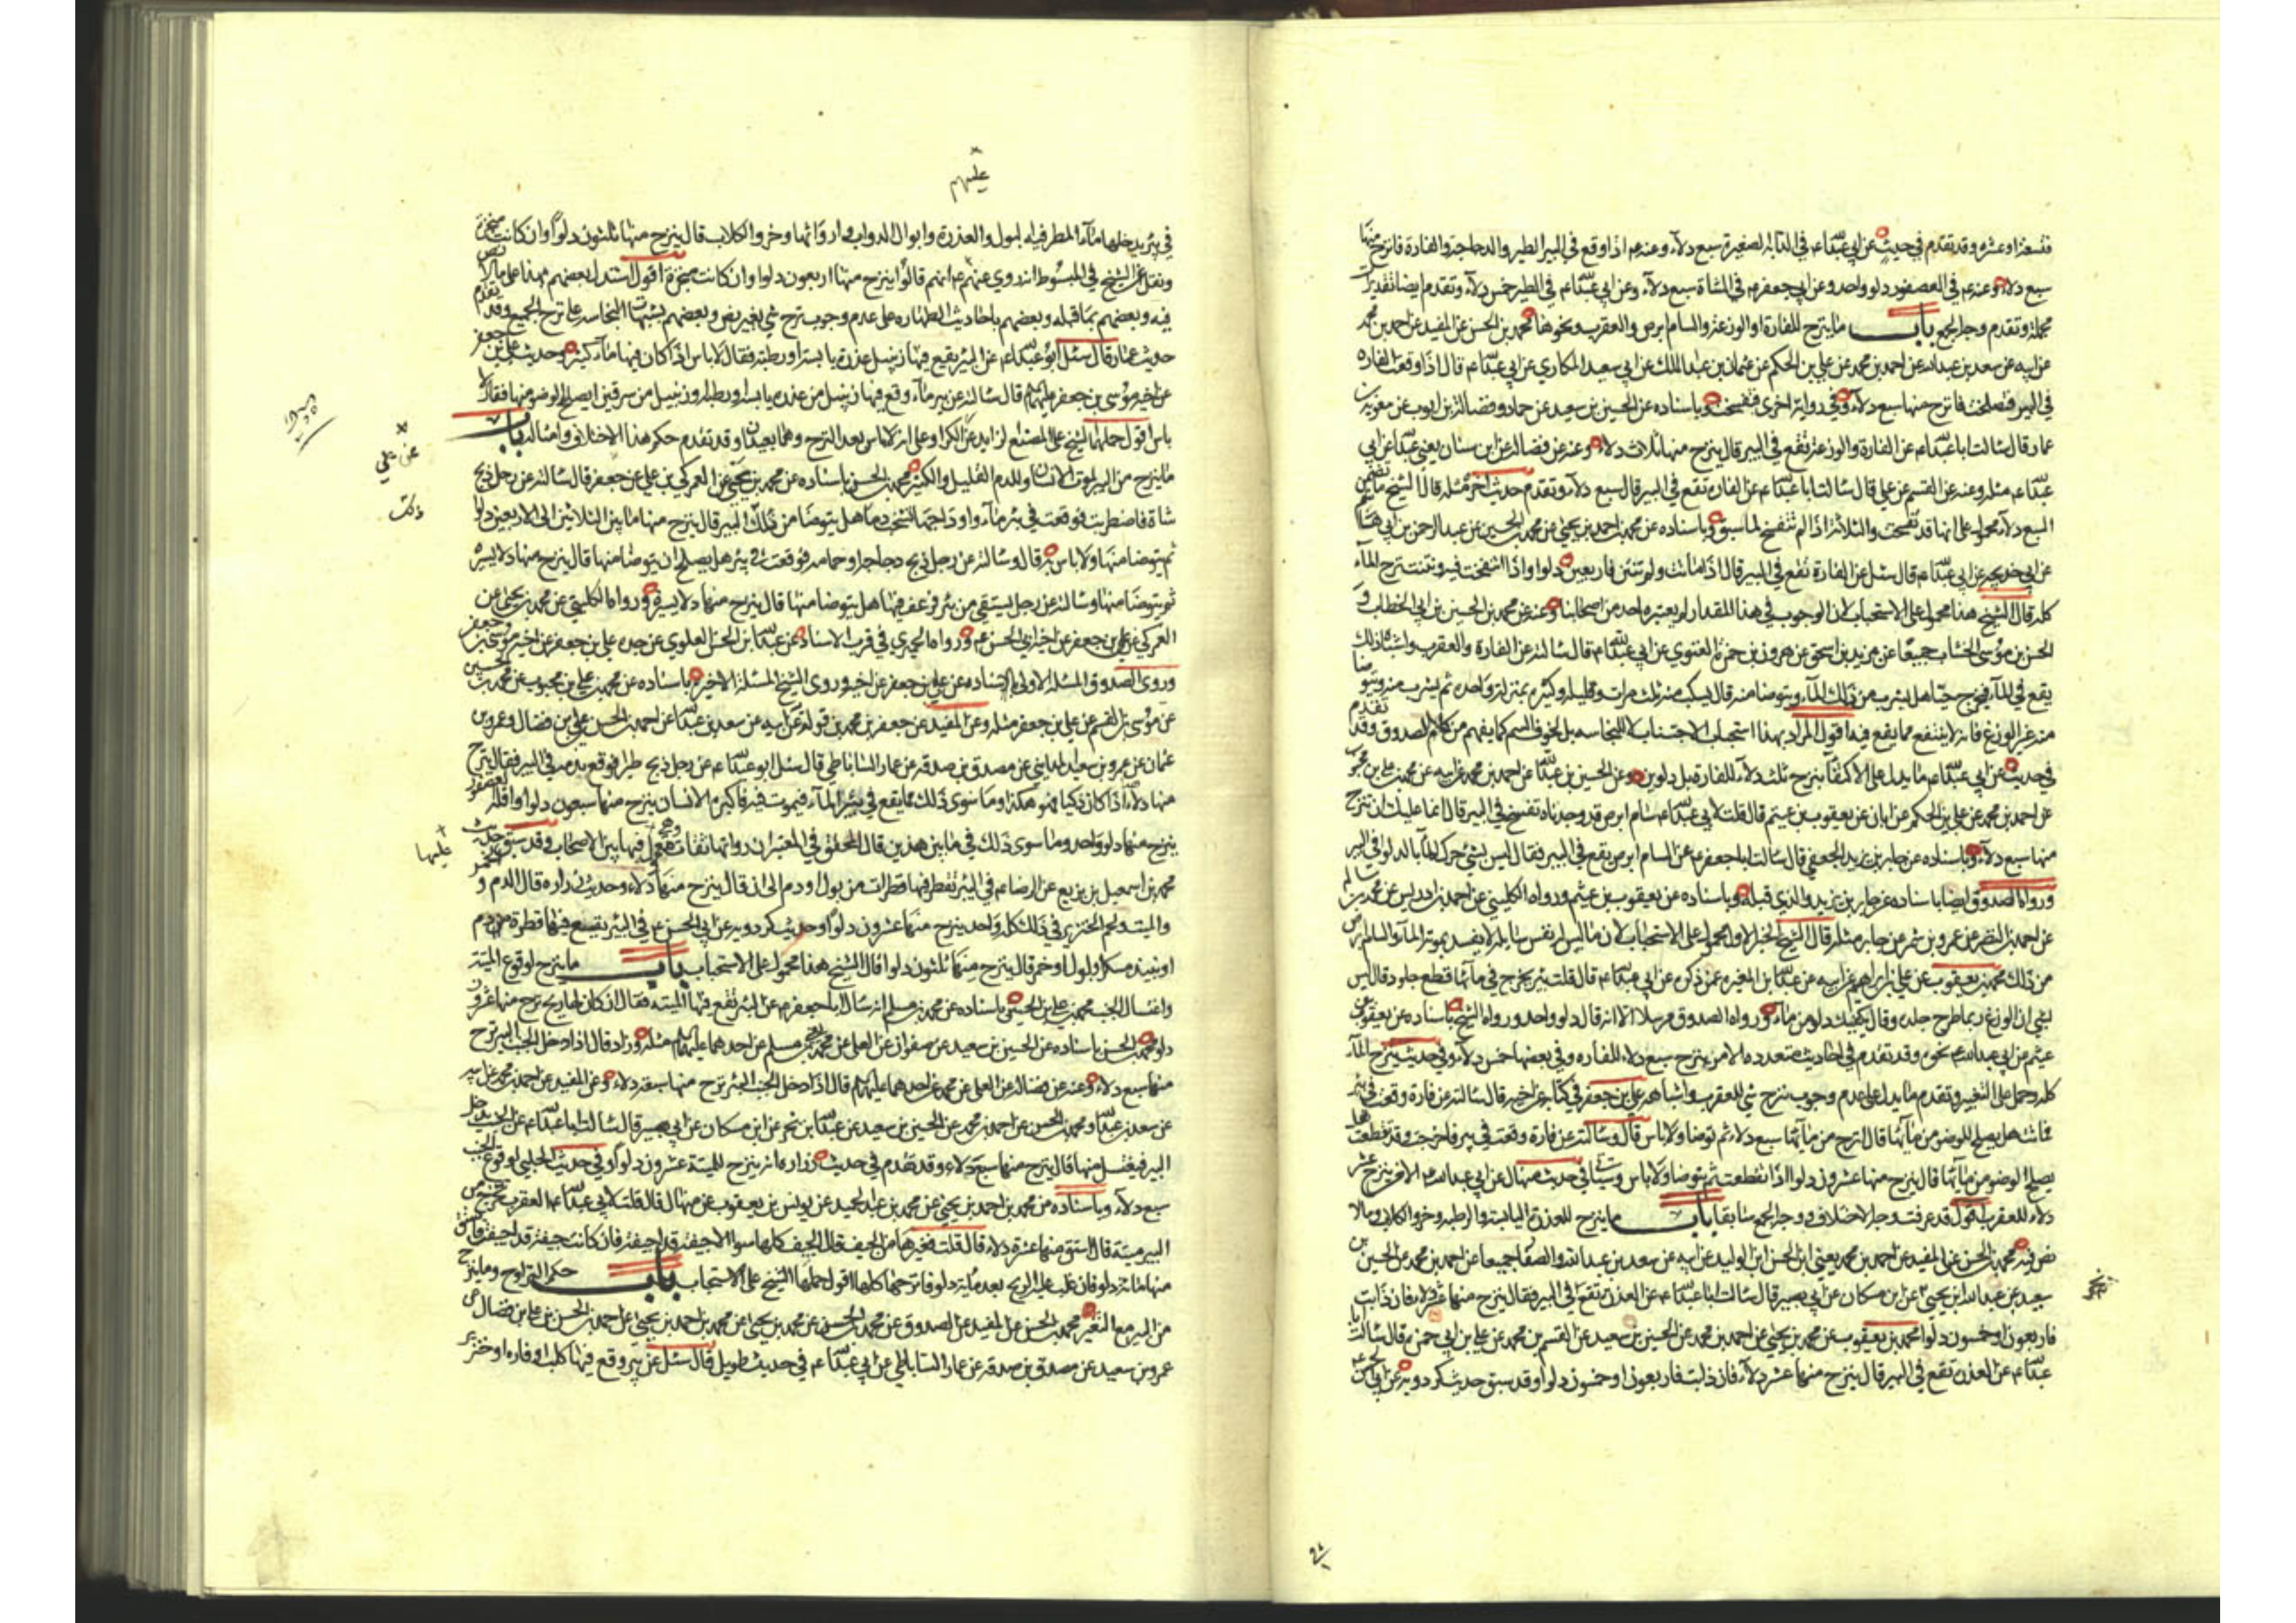 فتسعة او عشرة وقد تقدم في حديث عن ابي عبدالله ع في الدابة الصغيرة سبع دلاء وعنه ع اذا وقع في البير الطير والدجاجة والفارة فانزح منها
سبع دلاء وعنه ع في العصفور دلو واحد وعن ابي جعفر ع في الشاة سبع دلاء وعن ابي عبدالله ع في الطير خمس دلاء وتقدم ايضا تقديرات
مجملة وتقدم وجه الجمع باب ما ينزح للفارة والوزغة والسام ابرص والعقرب ونحوها محمد بن الحسن عن المفيد عن احمد بن محمد
عن ابيه عن سعد بن عبدالله عن احمد بن محمد عن علي بن الحكم عن عثمان بن عبد الملك عن ابي سعيد المكاري عن ابي عبدالله ع قال اذا وقعت الفارة
في البير فتسلخت فانزح منها سبع دلاء وفي رواية اخرى فتفسخت وباسناده عن الحسين بن سعيد عن حماد وفضالة بن ايوب عن معوية بن
عمار قال سالت ابا عبدالله ع عن الفارة والوزغة تقع في البير قال ينزح منها ثلاث دلاء وعنه عن فضالة عن ابن سنان يعني عبدالله عن ابي
عبدالله ع مثله وعنه عن القسم عن علي قال سالت ابا عبدالله ع عن الفارة تقع في البير قال سبع دلاء وتقدم حديث اخر مثله قال الشيخ ما تضمن
السبع دلاء محمول على انها قد تفسخت والثلاثة اذا لم تتفسخ لما سبق وباسناده عن محمد بن احمد بن يحيى عن محمد بن الحسين عن عبد الرحمن بن ابي هاشم
عن ابي خديجة عن ابي عبدالله ع قال سئل عن الفارة تقع في البير قال اذا ماتت ولم تنتن فاربعين دلوا واذا انتفخت فيه ونتنت نزح الماء
كله قال الشيخ هذا محمول على الاستحباب لان الوجوب في هذا المقدار لم يعتبره احد من اصحابنا وعنه عن محمد بن الحسين بن ابي الخطاب و
الحسن بن موسى الخشاب جميعا عن يزيد بن اسحق عن هرون بن حمزة الغنوي عن ابي عبدالله ع قال سالته عن الفارة والعقرب واشباه ذلك
يقع في الماء فيخرج حيا هل يشرب من ذلك الماء ويتوضا منه قال يسكب منه ثلث مرات وقليله وكثيره بمنزلة واحدة ثم يشرب منه ويتوضا
منه غير الوزغ فانه لا ينتفع مما يقع فيه اقول المراد بهذا استحباب الاجتناب لا للنجاسة بل لخوف السم كما يفهم من كلام الصدوق وقد تقدم
في حديث عن ابي عبدالله ع ما يدل على الاكتفا بنزح ثلث دلاء للفارة بل دلوين وعن الحسين بن عبيدالله عن احمد بن محمد عن ابيه عن محمد بن علي بن محبوب
عن احمد بن محمد عن علي بن الحكم عن ابان عن يعقوب بن عيثم قال قلت لابي عبدالله ع سام ابرص قد وجدناه تفسخ في البير قال انما عليك ان تنزح
منها سبع دلاء وباسناده عن جابر بن يزيد الجعفي قال سالت ابا جعفر ع عن السام ابرص يقع في البير فقال ليس بشي حرك الماء بالدلو في البير
ورواه الصدوق ايضا باسناده عن جابر بن يزيد والذي قبله وباسناده عن يعقوب بن عيثم ورواه الكليني عن احمد بن ادريس عن محمد بن سالم
عن احمد بن النضر عن عمرو بن شمر عن جابر مثله قال الشيخ الخبر الاول محمول على الاستحباب لان ما ليس له نفس سايلة لا يفسد بموته الماء والسام ابرص
من ذلك محمد بن يعقوب عن علي بن ابراهيم عن ابيه عن عبدالله بن المغيرة عمن ذكره عن ابي عبدالله ع قال قلت بئر يخرج في مائها قطع جلود قال ليس
بشي ان الوزغ ربما طرح جلده وقال يكفيك دلو من ماء ورواه الصدوق مرسلا الا انه قال دلو واحد ورواه الشيخ باسناده عن يعقوب بن
عيثم عن ابي عبدالله ع نحوه وقد تقدم في احاديث متعددة الامر بنزح سبع دلاء للفارة وفي بعضها خمس دلاء وفي حديث ينزح الماء
كله وحمل على التغير وتقدم ما يدل على عدم وجوب نزح شي للعقرب واشباهه علي بن جعفر في كتابه عن اخيه قال سالته عن فارة وقعت في بئر
فماتت هل يصلح الوضو من مائها قال انزح من مائها سبع دلاء ثم توضا ولا باس قال وسالته عن فارة وقعت في بير فاخرجت وقد تقطعت هل
يصلح الوضو من مائها قال ينزح منها عشرون دلوا اذا تقطعت ثم يتوضا ولا باس وسياتي في حديث منهال عن ابي عبدالله ع الامر بنزح عشر
دلاء للعقرب اقول قد عرفت وجه الاختلاف ووجه الجمع سابقا باب ما ينزح للعذرة اليابسة والرطبة وخرو الكلاب وما لا
نص فيه محمد بن الحسن عن المفيد عن احمد بن محمد يعني ابن الحسن ابن الوليد عن ابيه عن سعد بن عبدالله والصفار جميعا عن احمد بن محمد عن الحسين بن
سعيد عن عبدالله ابن يحيى عن ابن مسكان عن ابي بصير قال سالت ابا عبدالله ع عن العذرة تقع في البير فقال ينزح منها عشر دلاء فان ذابت
فاربعون او خمسون دلوا محمد بن يعقوب عن محمد بن يحيى عن احمد بن محمد عن الحسين بن سعيد عن القسم بن محمد عن علي بن ابي حمزة قال سالت ابا
عبدالله ع عن العذرة تقع في البير قال ينزح منها عشر دلاء فان ذابت فاربعون او خمسون دلوا وقد سبق حديث كردويه عن ابي الحسن ع
عليهم
في بئر يدخلها ماء المطر فيه البول والعذرة وابوال الدواب وارواثها وخرو الكلاب قال ينزح منها ثلثون دلوا وان كانت مبخرة
ونقل عن الشيخ في المبسوط انه روي عنهم ع انهم قالوا ينزح منها اربعون دلوا وان كانت مبخرة اقول استدل بعضهم بهذا على ما لا نص
فيه وبعضهم بما قبله وبعضهم باحاديث الطهارة على عدم وجوب نزح شي بغير نص وبعضهم بشبهات النجاسة على نزح الجميع وقد تقدم
حديث عمار قال سئل ابو عبدالله ع عن البئر يقع فيها زنبيل عذرة يابسة او رطبة فقال لا باس اذا كان فيها ماء كثير وحديث علي بن جعفر
عن اخيه موسى بن جعفر عليهم قال سالته عن بير ماء وقع فيها زنبيل من عذرة يابسة او رطبة او زنبيل من سرقين ايصلح الوضو منها فقال لا
باس اقول حملهما الشيخ على المصنع الزايد عن الكر او على انه لا باس بعد النزح وهما بعيدان وقد تقدم حكم هذا الاختلاف وامثاله باب
ما ينزح من البير لموت الانسان وللدم القليل والكثير محمد بن الحسن باسناده عن محمد بن يحيى عن العمركي بن علي عن جعفر قال سالته عن رجل ذبح
شاة فاضطربت فوقعت في بئر ماء واوداجها تشخب دما هل يتوضا من ذلك البير قال ينزح منها ما بين الثلاثين الى الاربعين دلوا
ثم يتوضا منها ولا باس به قال وسالته عن رجل ذبح دجاجة او حمامة فوقعت في بئر هل يصلح ان يتوضا منها قال ينزح منها دلاء يسيرة
ثم يتوضا منها وسالته عن رجل يستقي من بئر فرعف فيها هل يتوضا منها قال ينزح منها دلاء يسيرة ورواه الكليني عن محمد بن يحيى عن
العمركي عن علي بن جعفر عن اخيه ابي الحسن ع ورواه الحميري في قرب الاسناد عن عبدالله بن الحسن العلوي عن جده علي بن جعفر عن اخيه موسى بن جعفر
وروى الصدوق المسئلة الاولى باسناده عن علي بن جعفر عن اخيه وروى الشيخ المسئلة الاخيرة باسناده عن محمد بن علي بن محبوب عن محمد بن الحسين
عن موسى بن القسم عن علي بن جعفر مثله وعن المفيد عن جعفر بن محمد بن قولويه عن ابيه عن سعد بن عبدالله عن احمد بن الحسن بن علي بن فضال وعمرو بن
عثمان عن عمرو بن سعيد المدايني عن مصدق بن صدقة عن عمار الساباطي قال سئل ابو عبدالله ع عن رجل ذبح طيرا فوقع بدمه في البير فقال ينزح
منها دلاء اذا كان ذكيا فهو هكذا وما سوى ذلك مما يقع في بئر الماء فيموت فيه فاكبره الانسان ينزح منها سبعون دلوا واقله العصفور
ينزح منها دلو واحد وما سوى ذلك في ما بين هذين قال المحقق في المعتبر ان رواتها ثقات وهي معمول فيها بين الاصحاب وقد سبق حديث
محمد بن اسمعيل بن بزيع عن الرضا ع في البئر تقطر فيها قطرات من بول او دم الى ان قال ينزح منها دلاء وحديث زرارة قال الدم و الخمر
والميتة ولحم الخنزير في ذلك كله واحد ينزح منها عشرون دلوا وحديث كردويه عن ابي الحسن ع في البئر يقع فيها قطرة من دم
او نبيذ مسكر او بول او خمر قال ينزح منها ثلثون دلوا قال الشيخ هذا محمول على الاستحباب باب ما ينزح لوقوع الميتة
واغتسال الجنب محمد بن علي بن الحسين باسناده عن محمد بن مسلم انه سال ابا جعفر ع عن البئر تقع فيها الميتة فقال ان كان لها ريح نزح منها عشرون
دلوا محمد بن الحسن باسناده عن الحسين بن سعيد عن صفوان عن العلا عن محمد بن مسلم عن احدهما عليهما السلام مثله وزاد قال اذا دخل الجنب البير نزح
منها سبع دلاء وعنه عن فضالة عن العلا عن محمد عن احدهما عليهم قال اذا دخل الجنب البئر نزح منها سبعة دلاء وعن المفيد عن احمد بن محمد عن ابيه
عن سعد بن عبدالله ومحمد بن الحسن عن احمد بن محمد عن الحسين بن سعيد عن عبدالله بن بحر عن ابن مسكان عن ابي بصير قال سالت ابا عبدالله ع عن الجنب يدخل
البير فيغتسل منها قال ينزح منها سبع دلاء وقد تقدم في حديث زرارة انه ينزح للميتة عشرون دلوا وفي حديث الحلبي لوقوع الجنب
سبع دلاء وباسناده عن محمد بن احمد بن يحيى عن محمد بن عبد الحميد عن يونس بن يعقوب عن منهال قال قلت لابي عبدالله ع العقرب تخرج من
البير ميتة قال استق منها عشرة دلاء قال قلت فغيرها من الجيف قال الجيف كلها سوا الا جيفة قد اجيفت فان كانت جيفة قد اجيفت فاستق
منها مائة دلو فان غلب عليه الريح بعد مائة دلو فانزحها كلها اقول حملها الشيخ على الاستحباب باب حكم التراوح وما ينزح
من البير مع التغير محمد بن الحسن عن المفيد عن الصدوق عن محمد بن الحسن عن محمد بن يحيى عن محمد بن احمد بن يحيى عن احمد بن الحسن بن علي بن فضال عن
عمرو بن سعيد عن مصدق بن صدقة عن عمار الساباطي عن ابي عبدالله ع في حديث طويل قال سئل عن بير وقع فيها كلب او فارة او خنزير
عن علي
ذلك
عليهما